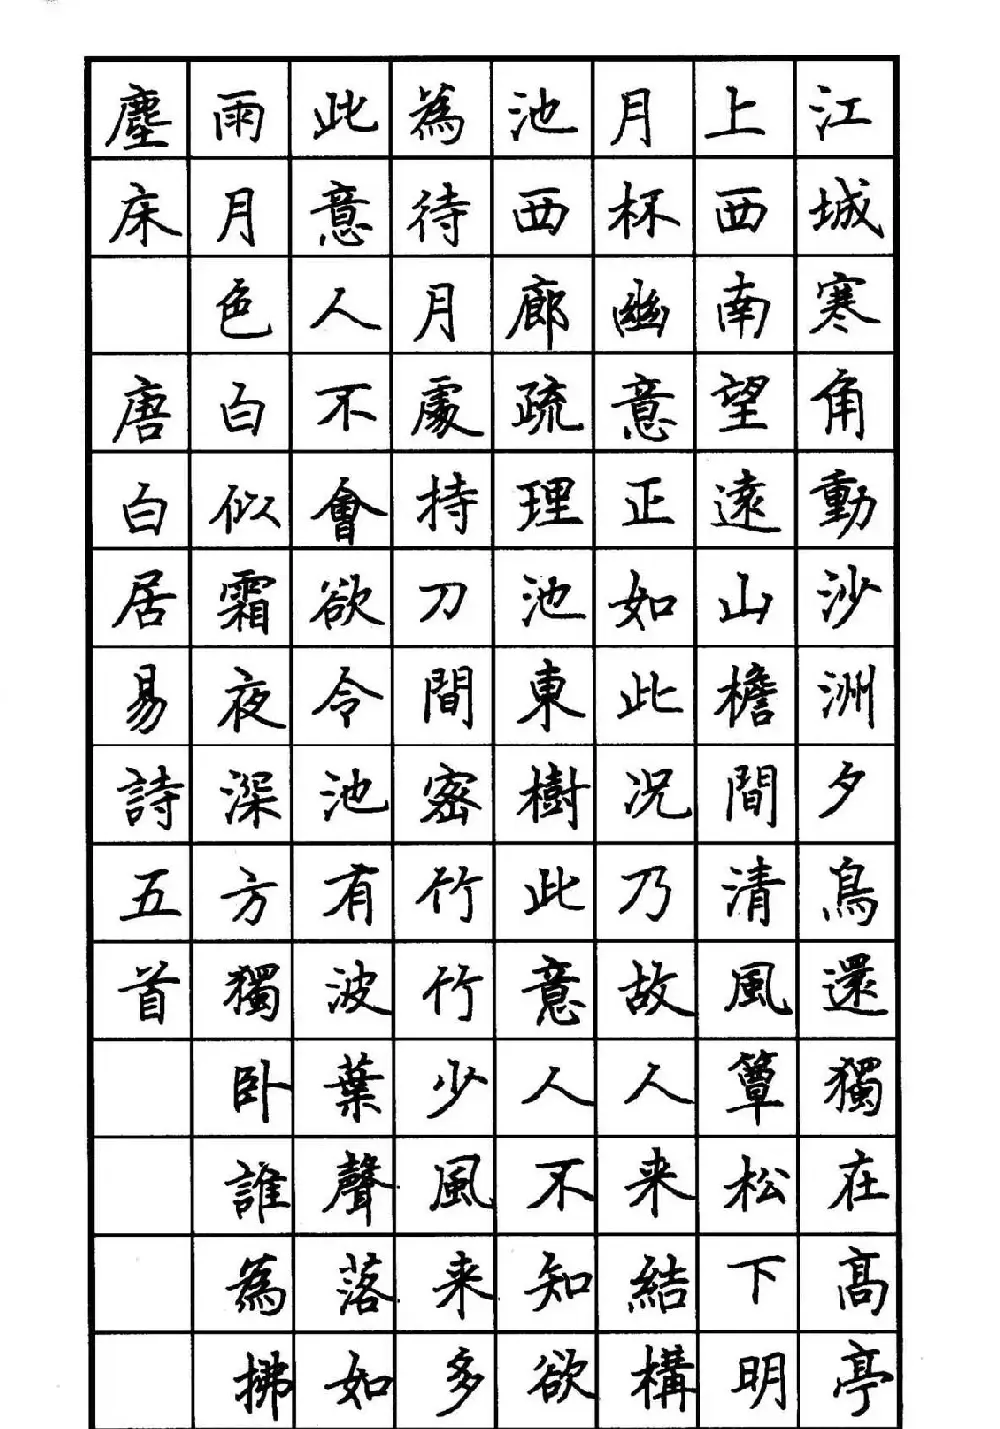 江城寒角動沙洲夕鳥還獨在高亭
上西南望遠山檐間清風簟松下明
月杯幽意正如此況乃故人来結構
池西廊疏理池東樹此意人不知欲
為待月處持刀間密竹竹少風来多
此意人不會欲令池有波葉聲落如
雨月色白似霜夜深方獨卧誰為拂
塵床 唐白居易詩五首